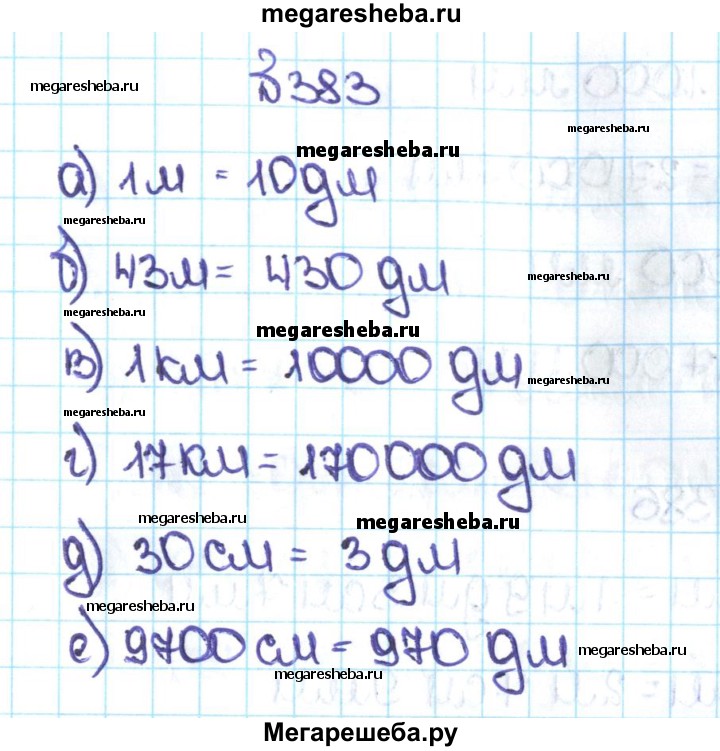 megaresheba.ru
№ 383
megaresheba.ru
megaresheba.ru
megaresheba.ru
а) 1м = 10дм
megaresheba.ru
б) 43м = 430 дм
megaresheba.ru
megaresheba.ru
megaresheba.ru
в) 1км = 10000 дм
megaresheba.ru
megaresheba.ru
г) 17км = 170000 дм
megaresheba.ru
megaresheba.ru
д) 30см = 3 дм
megaresheba.ru
е) 9700см = 970 дм
megaresheba.ru
Мегарешеба.ру